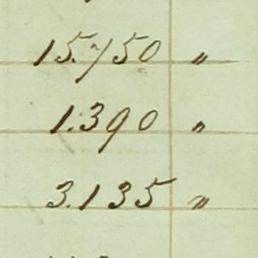 15.750 "
1.390 "
3.135 "